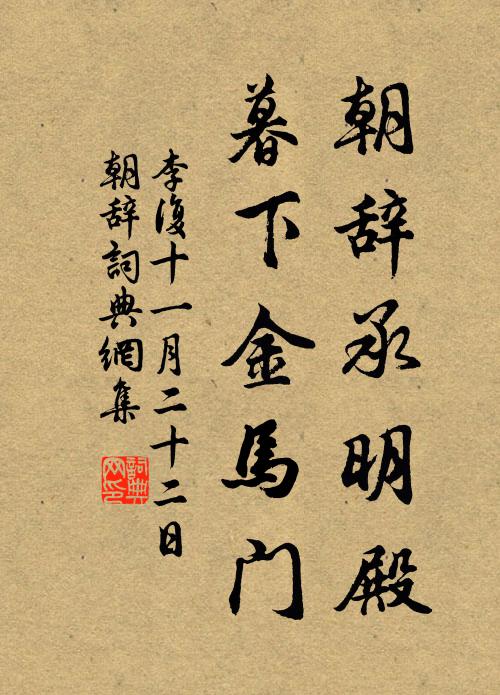 朝辞承明殿
暮下金馬门
李復十一月二十二日
朝辞詞典網集
詞典网印